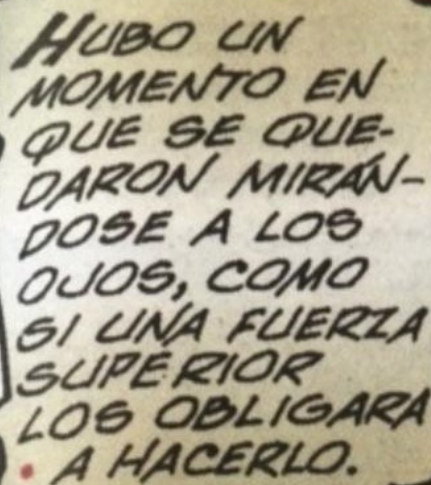 HUBO UN
MOMENTO EN
QUE SE QUE-
DARON MIRÁN-
DOSE A LOS
OJOS, COMO
SI UNA FUERZA
SUPERIOR
LOS OBLIGARA
A HACERLO.